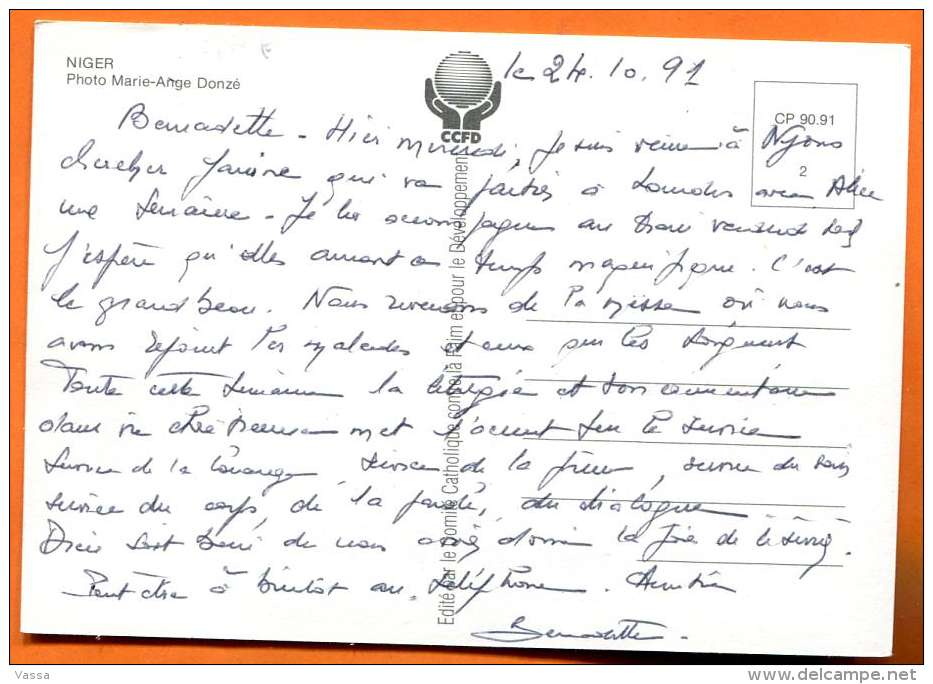 NIGER
Photo Marie-Ange Donzé
le 24.10.91
CCFD
CP 90.91
2
Bernadette - Hier mercredi, je suis venue à Nyons
chercher Janine qui va partir à Lourdes avec Alice
une semaine - Je les accompagne au train vendredi
J'espère qu'elles auront un temps magnifique. C'est
le grand beau. Nous revenons de la messe où nous
avons rejoint les malades et ceux qui les soignent
Toute cette semaine la liturgie et son commentaire
dans vie chrétienne met l'accent sur le service
service de la louange service de la prière, service du soin
service du corps, de la santé, du dialogue
Dieu soit béni de nous avoir donné la joie de le servir.
Peut être à bientôt au téléphone. Amitiés
Bernadette -
Edité par le Comité Catholique contre la Faim et pour le Développement
Vassa
www.delcampe.net